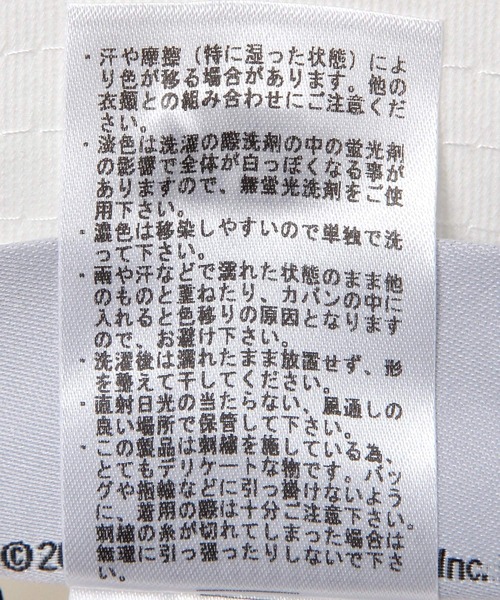 ・汗や摩擦（特に湿った状態）によ
り色が移る場合があります。他の
衣類との組み合わせにご注意くだ
さい。
・淡色は洗濯の際洗剤の中の蛍光剤
の影響で全体が白っぽくなる事が
ありますので、無蛍光洗剤をご使
用下さい。
・濃色は移染しやすいので単独で洗
って下さい。
・雨や汗などで濡れた状態のまま他
のものと重ねたり、カバンの中に
入れると色移りの原因となります
ので、お避け下さい。
・洗濯後は濡れたまま放置せず、形
を整えて干してください。
・直射日光の当たらない、風通しの
良い場所で保管して下さい。
・この製品は刺繍を施している為、
とてもデリケートな物です。バッ
グや指輪などに引っ掛けないよう
に、着用の際は十分ご注意下さい。
刺繍の糸が切れてしまった場合は
無理に引っ張ったりしないで下さ
い。
©20
Inc.